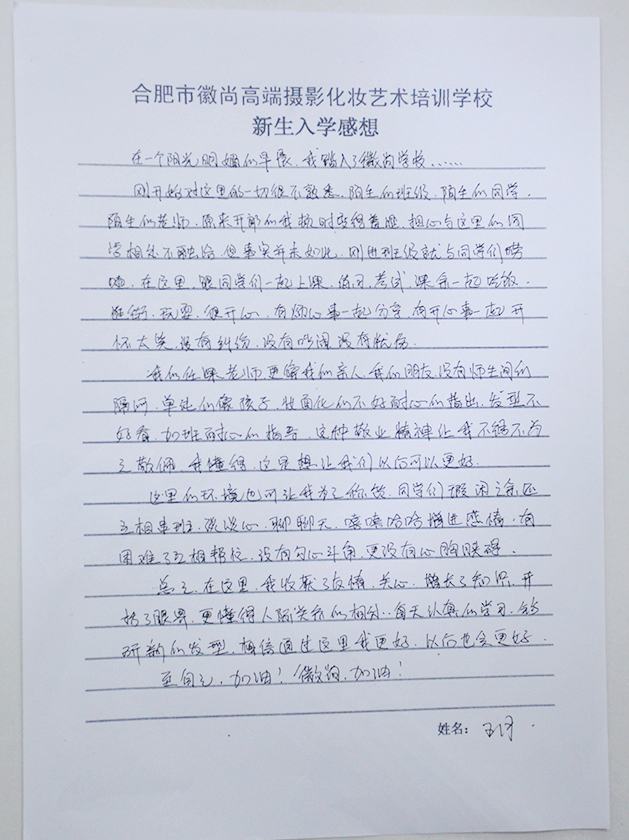 合肥市徽尚高端摄影化妆艺术培训学校
新生入学感想
在一个阳光明媚的早晨,我踏入了徽尚学校……
刚开始对这里的一切很不熟悉,陌生的班级,陌生的同学,
陌生的老师,原来开朗的我顿时变得羞涩,担心与这里的同
学相处不融洽,但事实并未如此,刚进班级就与同学们唠
嗑,在这里,跟同学们一起上课,练习,考试,课余一起吃饭,
逛街,玩耍,很开心,有烦心事一起分享,有开心事一起开
怀大笑,没有纠纷,没有吵闹,没有忧伤。
我们任课老师更像我们亲人,我们朋友,没有师生间的
隔阂,单纯的像孩子,妆面化的不好耐心的指出,发型不
好看,加班耐心的指导,这种敬业精神让我不得不为
之敬佩,我懂得,这是想让我们以后可以更好。
这里的环境也可让我为之称赞,同学们暇闲之余还
互相串班,谈谈心,聊聊天,嘻嘻哈哈增进感情,有
困难了互相帮忙,没有勾心斗角,更没有心胸狭碍。
总之,在这里,我收获了友情,关心,增长了知识,开
拓了眼界,更懂得人际关系的相处,每天认真的学习,钻
研新的发型,相信通过这里我更好,以后也会更好。
至自己,加油!徽尚,加油!
姓名:王